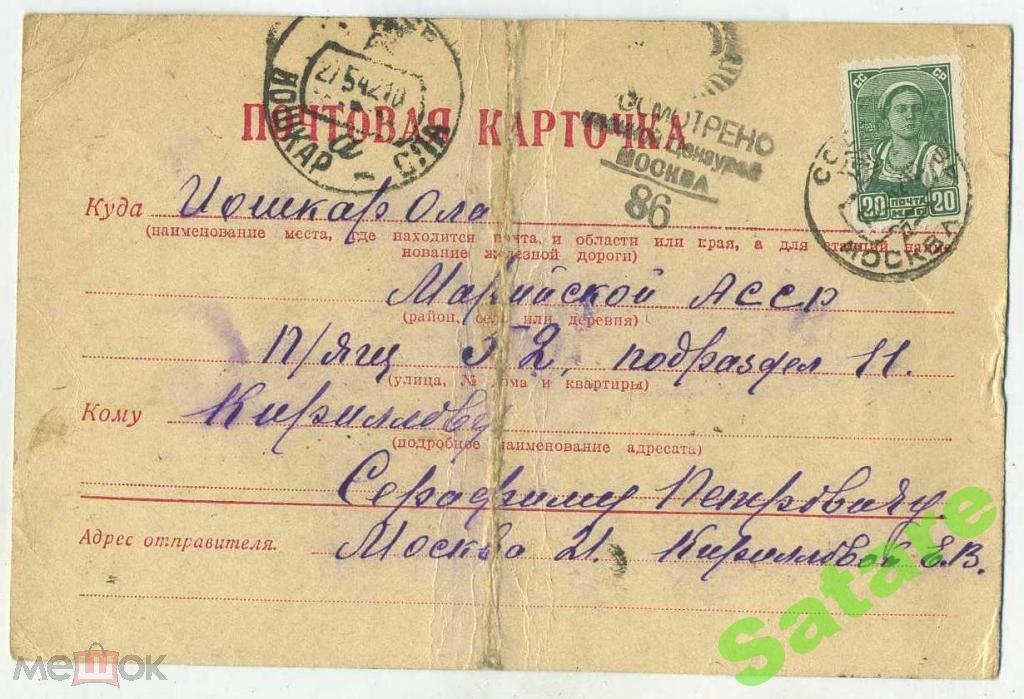 ПОЧТОВАЯ КАРТОЧКА
ЙОШКАР-ОЛА
27 5 42 10
ОСМОТРЕНО
Военной Цензурой
МОСКВА
86
СС СР
20 ПОЧТА 20
КОП
МОСКВА
Куда Иошкар Ола
(наименование места, где находится почта, и области или края, а для станций наиме-
нование железной дороги)
Марийской АССР
(район, село или деревня)
П/ящ 52, подраздел 11.
(улица, № дома и квартиры)
Кому Кириллову
(подробное наименование адресата)
Серафиму Петровичу.
Адрес отправителя. Москва 21. Кирилловой Е.В.
Satare
мешок